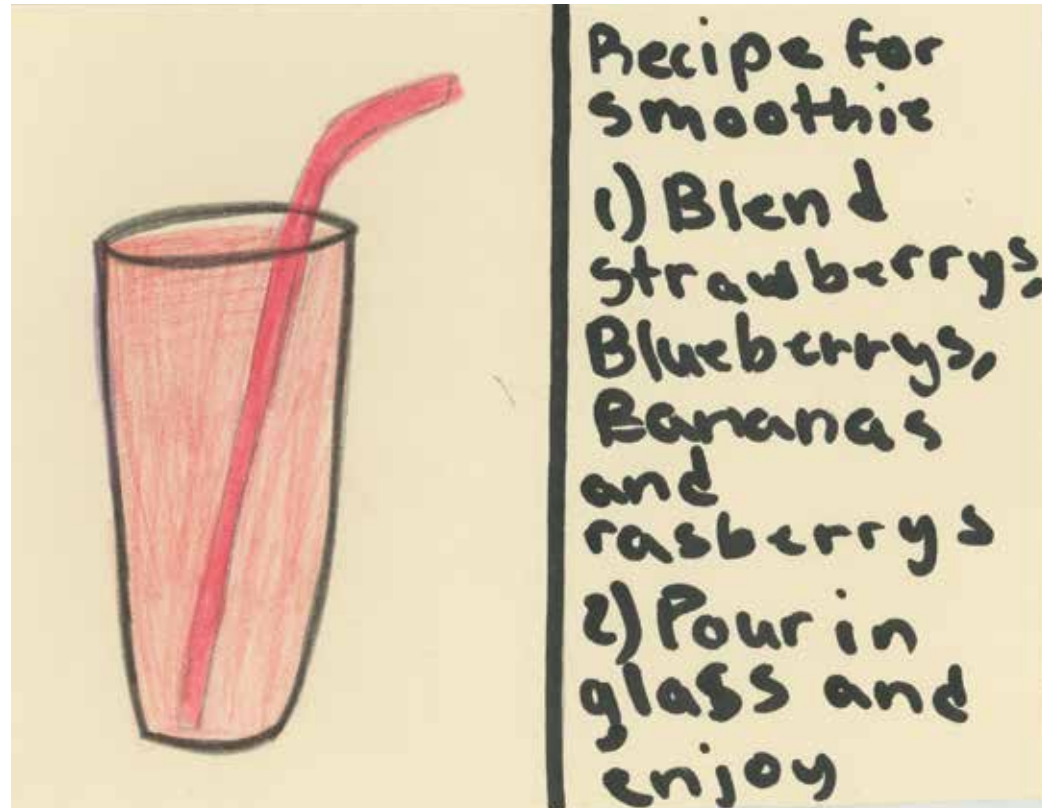 Recipe for
smoothie
1) Blend
strawberrys,
Blueberrys,
Bananas
and
rasberrys
2) Pour in
glass and
enjoy